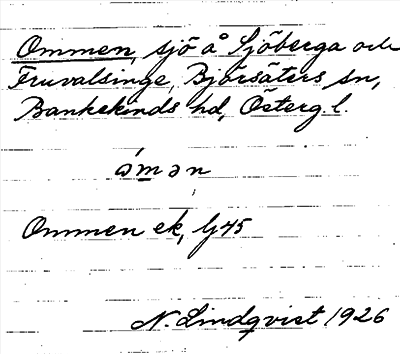 Ommen, sjö å Sjöberga och
Fruvalsinge, Björsäters sn,
Bankekinds hd, Österg.l.
óm̲ən
Ommen ek, lj 45
N. Lindqvist 1926